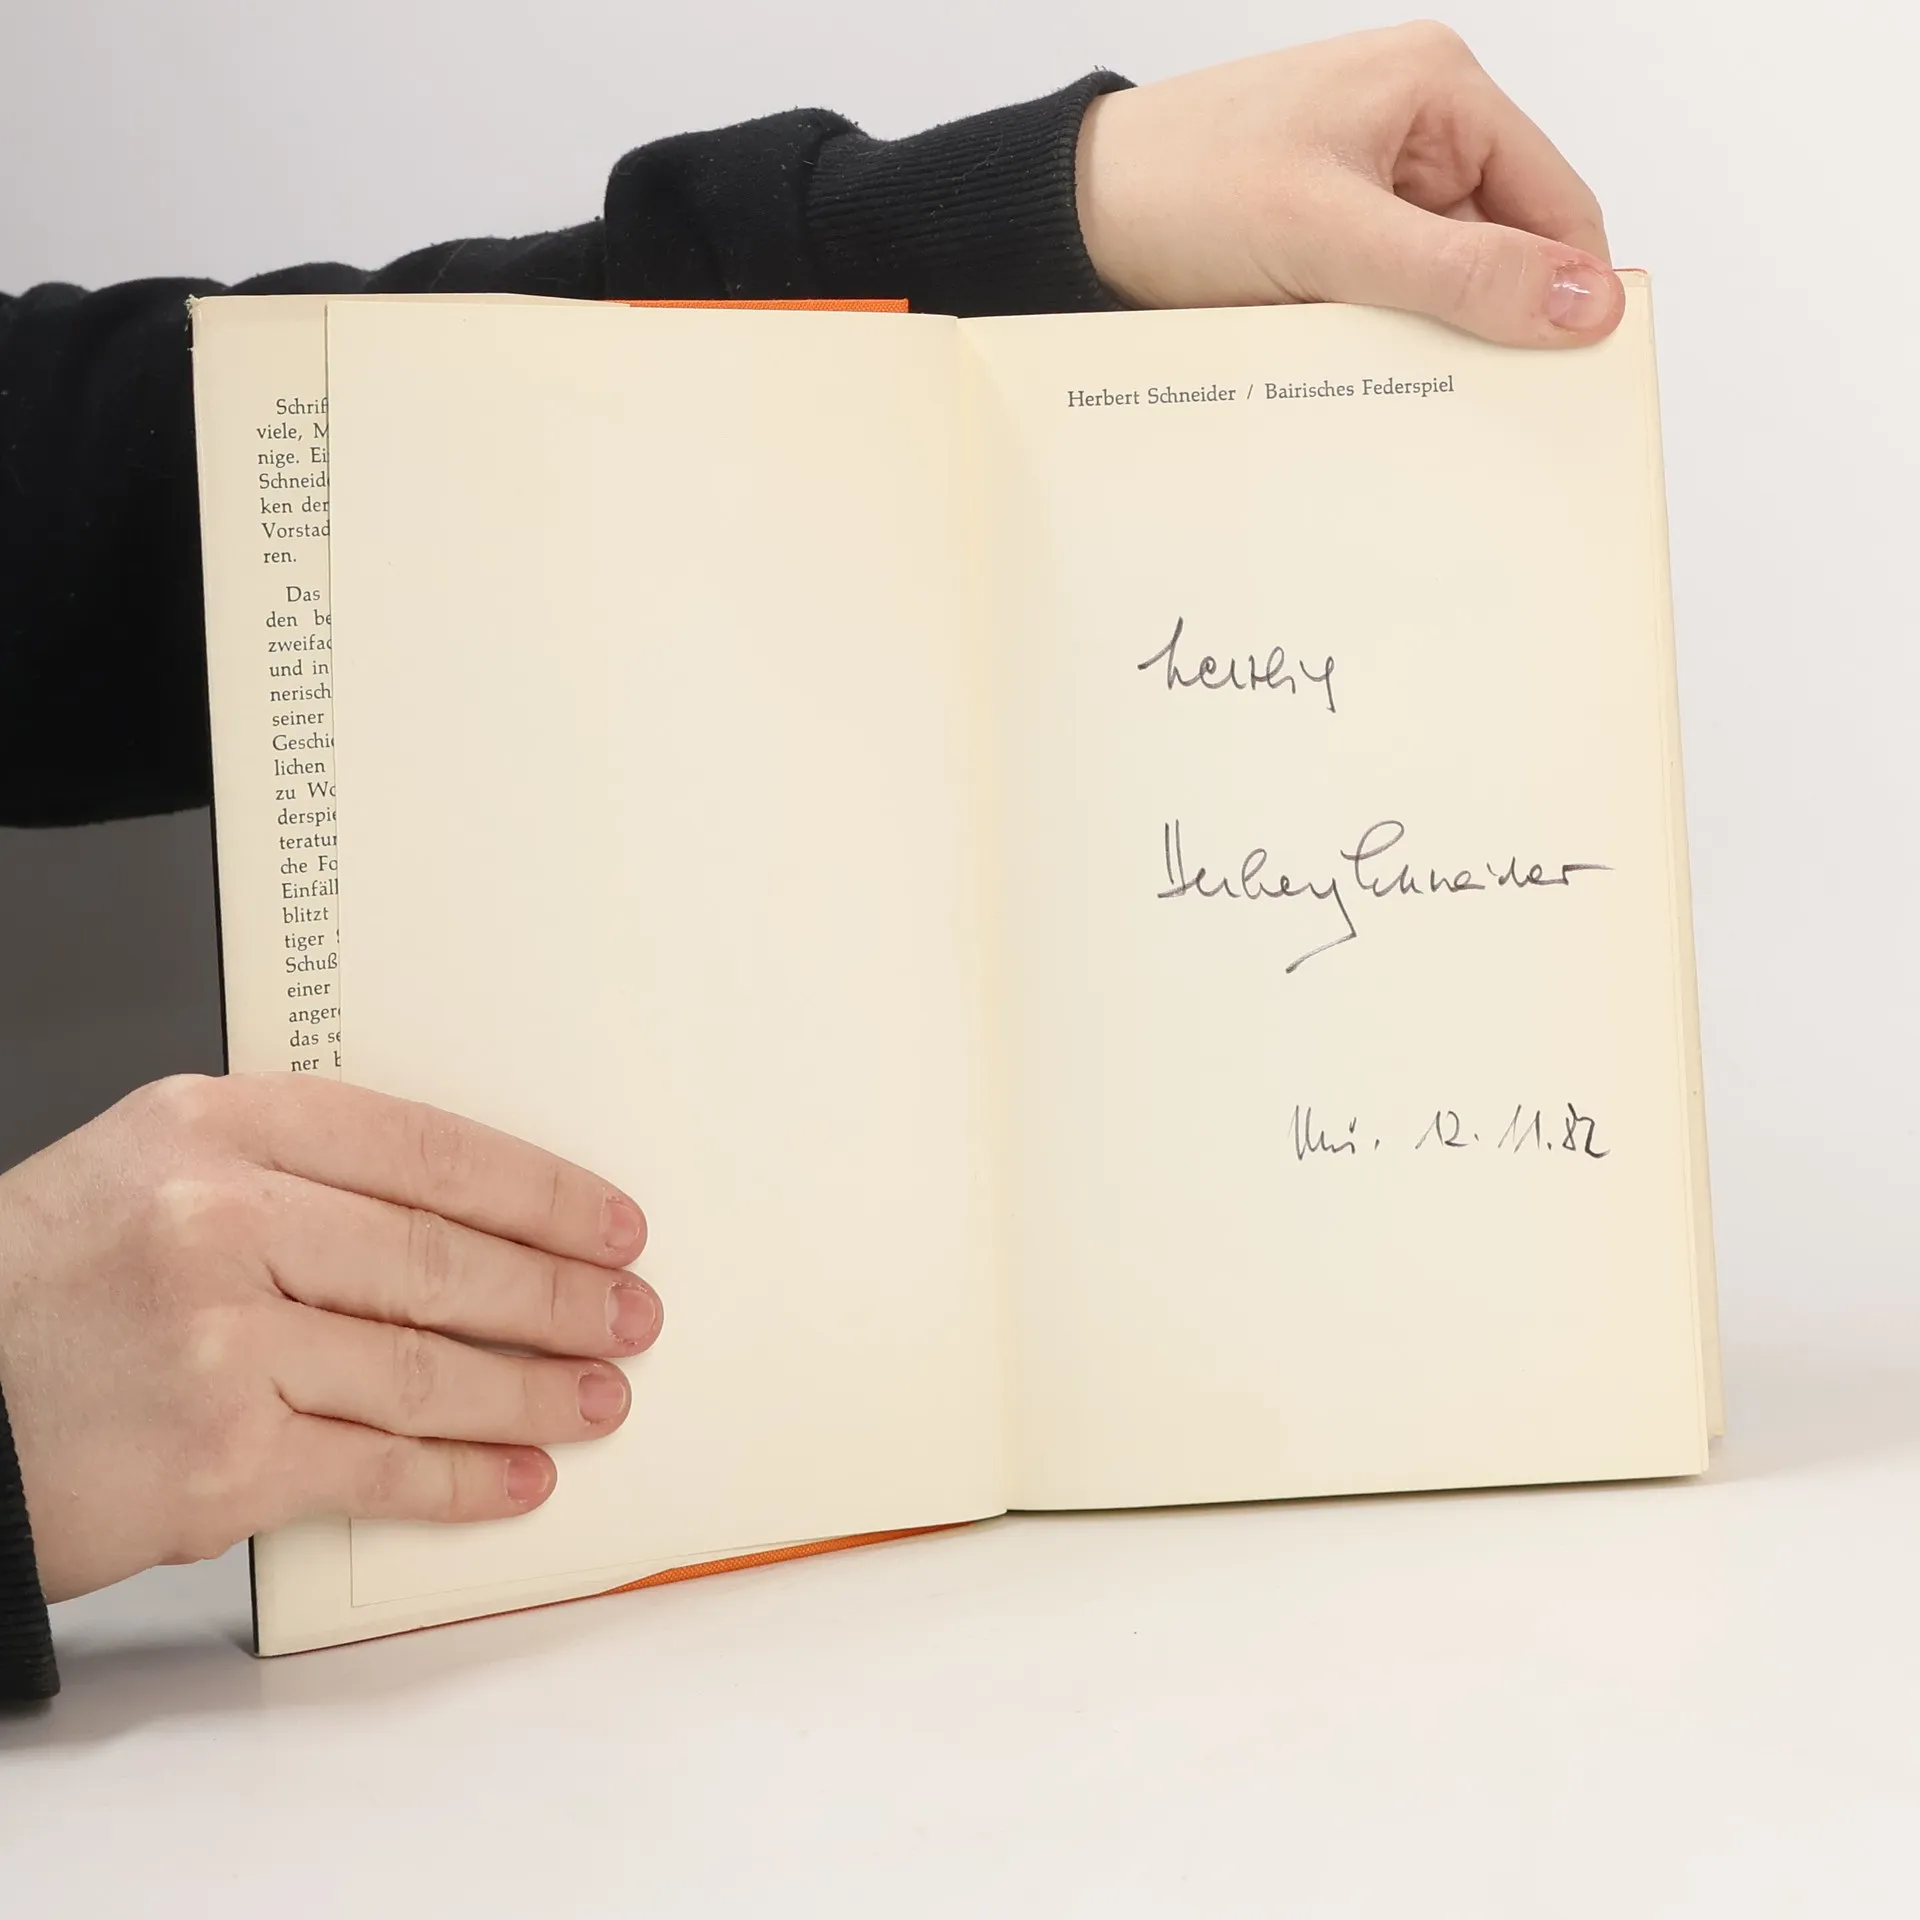 Schrif
viele, M
nige. Ei
Schneid
ken der
Vorstad
ren.
Das
den be
zweifac
und in
nerisch
seiner
Geschi
lichen
zu Wo
derspie
teratur
che Fo
Einfäll
blitzt
tiger
Schuß
einer
anger
das se
ner b
Herbert Schneider / Bairisches Federspiel
herzlig
Herbert Schneider
Mü. 12. 11. 82